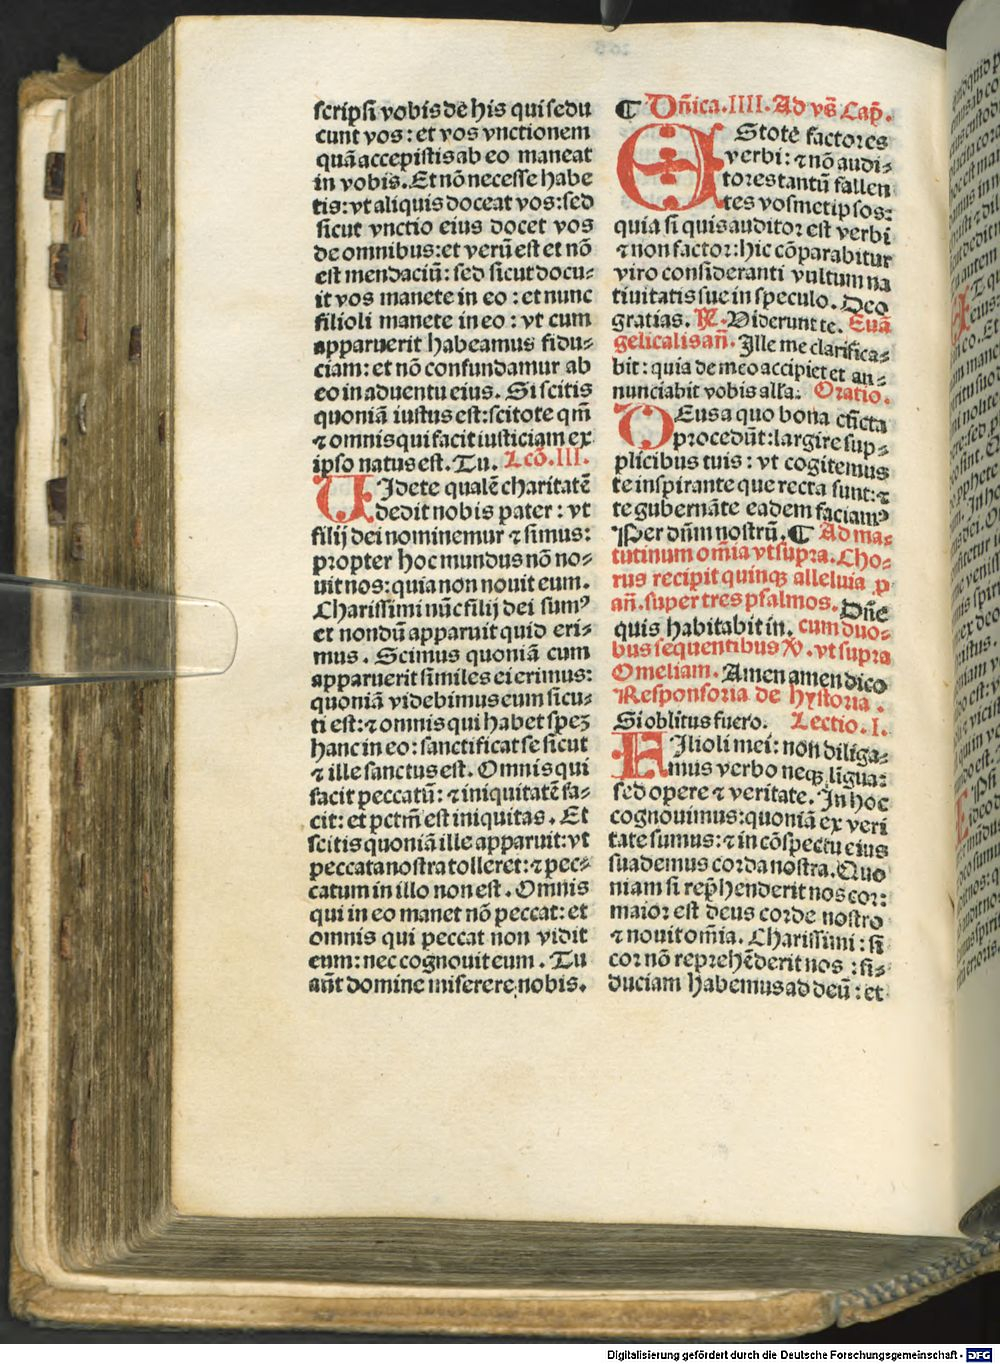 scripsi vobis de his qui sedu
cunt vos: et vos vnctionem
quā accepistis ab eo maneat
in vobis. Et nō necesse habe
tis: vt aliquis doceat vos: sed
sicut vnctio eius docet vos
de omnibus: et verū est et nō
est mendaciū: sed sicut docu-
it vos manete in eo: et nunc
filioli manete in eo: vt cum
apparuerit habeamus fidu-
ciam: et nō confundamur ab
eo in aduentu eius. Si scitis
quoniā iustus est: scitote qm̄
⁊ omnis qui facit iusticiam ex
ipso natus est. Tu. Lcō. III.
UIdete qualē charitatē
dedit nobis pater: vt
filij dei nominemur ⁊ simus:
propter hoc mundus nō no-
uit nos: quia non nouit eum.
Charissimi nūc filij dei sumꝰ
et nondū apparuit quid eri-
mus. Scimus quoniā cum
apparuerit similes ei erimus:
quoniā videbimus eum sicu-
ti est: ⁊ omnis qui habet spez
hanc in eo: sanctificat se sicut
⁊ ille sanctus est. Omnis qui
facit peccatū: ⁊ iniquitatē fa-
cit: et pctm̄ est iniquitas. Et
scitis quoniā ille apparuit: vt
peccata nostra tolleret: ⁊ pec-
catum in illo non est. Omnis
qui in eo manet nō peccat: et
omnis qui peccat non vidit
eum: nec cognouit eum. Tu
aūt domine miserere nobis.
¶ Dñica. IIII. Ad vs̄ Cap̄.
EStote factores
verbi: ⁊ nō audi-
tores tantū fallen
tes vosmetipsos:
quia si quis auditor est verbi
⁊ non factor: hic cōparabitur
viro consideranti vultum na
tiuitatis sue in speculo. Deo
gratias. ℟. Viderunt te. Euā
gelicalis añ. Ille me clarifica-
bit: quia de meo accipiet et an-
nunciabit vobis alla. Oratio.
DEus a quo bona cūcta
procedūt: largire sup-
plicibus tuis: vt cogitemus
te inspirante que recta sunt: ⁊
te gubernāte eadem faciamꝰ
Per dūm nostrū. ¶ Ad ma-
tutinum om̄ia vt supra. Cho-
rus recipit quinqꝫ alleluia ꝓ
añ. super tres psalmos. Dñe
quis habitabit in. cum duo-
bus sequentibus ℣. vt supra
Omeliam. Amen amen dico
Responsoria de hystoria.
Si oblitus fuero. Lectio. I.
FIlioli mei: non diliga-
mus verbo neqꝫ ligua:
sed opere ⁊ veritate. In hoc
cognouimus: quoniā ex veri
tate sumus: ⁊ in cōspectu eius
suademus corda nostra. Quo
niam si rep̄henderit nos cor:
maior est deus corde nostro
⁊ nouit om̄ia. Charissimi: si
cor nō reprehēderit nos: fi-
duciam habemus ad deū: et
Digitalisierung gefördert durch die Deutsche Forschungsgemeinschaft - DFG